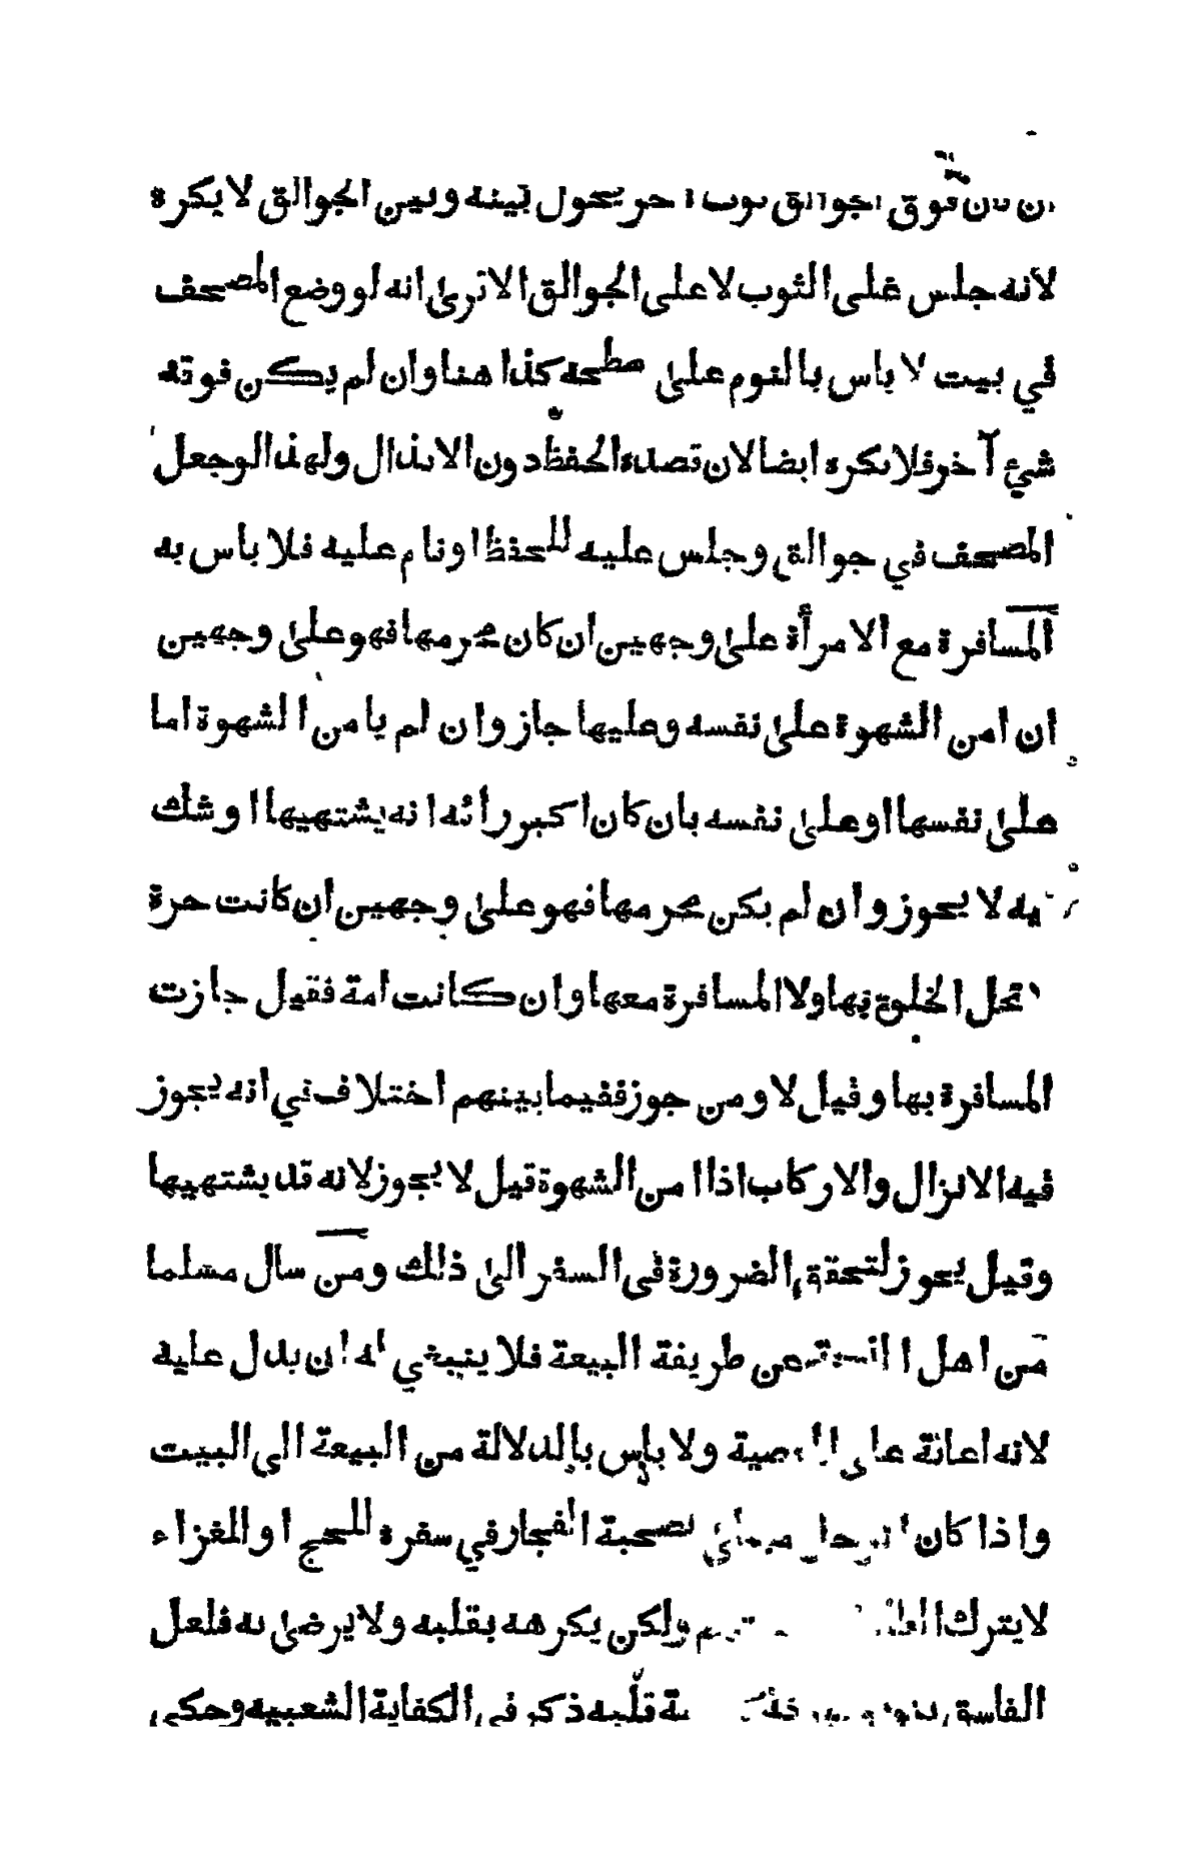 فوق الجوالق ثوب آخر يحول بينه وبين الجوالق لا يكره
لأنه جلس على الثوب لا على الجوالق الا ترى انه لو وضع المصحف
في بيت لا باس بالنوم على سطحه كذا هنا وان لم يكن فوقه
شيء آخر فلا يكره ايضا لان قصده الحفظ دون الابتذال ولهذا لو جعل
المصحف في جوالق وجلس عليه للحفظ او نام عليه فلا باس به
المسافرة مع الامرأة على وجهين ان كان محرمها فهو على وجهين
ان امن الشهوة على نفسه وعليها جاز وان لم يامن الشهوة اما
على نفسها او على نفسه بان كان اكبر رائه انه يشتهيها او شك
فيه لا يجوز وان لم يكن محرمها فهو على وجهين ان كانت حرة
لا تحل الخلوة بها ولا المسافرة معها وان كانت امة فقيل جازت
المسافرة بها وقيل لا ومن جوز ففيما بينهم اختلاف في انه يجوز
فيه الانزال والاركاب اذا امن الشهوة قيل لا يجوز لانه قد يشتهيها
وقيل يجوز لتحقق الضرورة في السفر الى ذلك ومن سال مسلما
من اهل الذمة عن طريقة البيعة فلا ينبغي له ان يدل عليه
لانه اعانة على المعصية ولا باس بالدلالة من البيعة الى البيت
واذا كان الرجل مبتلى بصحبة الفجار في سفره للحج او للغزاء
لا يترك ولكن يكرهه بقلبه ولا يرضى به فلعل
الفاسق قلبه ذكر في الكفاية الشعبيه وحكي